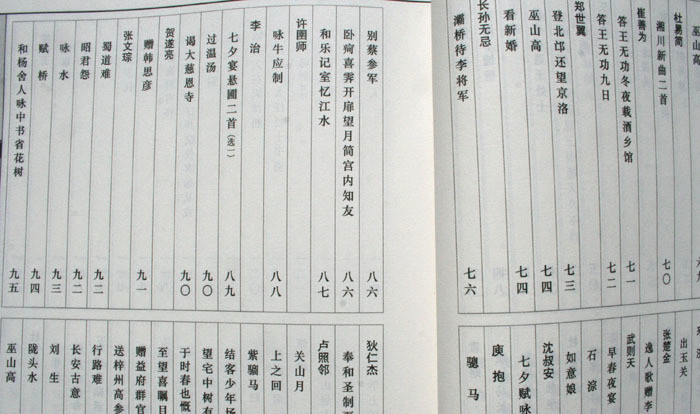 巫山高
杜易简
湘川新曲二首 七〇
崔善为
答王无功冬夜载酒乡馆 七一
答王无功九日 七二
郑世翼
登北邙还望京洛 七三
巫山高 七四
看新婚 七四
长孙无忌
灞桥待李将军 七六
出玉关
张楚金
逸人歌赠李
武则天
早春夜宴
石淙
如意娘
沈叔安
七夕赋咏
庾抱
骢马
别蔡参军 八六
卧疴喜霁开扉望月简宫内知友 八六
和乐记室忆江水 八七
许圉师
咏牛应制 八八
李治
七夕宴悬圃二首（选一） 八九
过温汤 九〇
谒大慈恩寺 九〇
贺遂亮
赠韩思彦 九一
张文琮
蜀道难 九二
昭君怨 九二
咏水 九三
赋桥 九四
和杨舍人咏中书省花树 九五
狄仁杰
奉和圣制
卢照邻
关山月
上之回
紫骝马
结客少年场
望宅中树有
于时春也慨
至望喜瞩目
赠益府群官
送梓州高参
行路难
长安古意
刘生
陇头水
巫山高